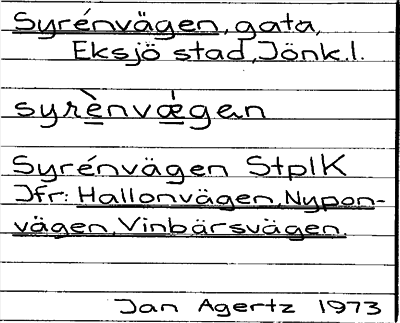 Syrénvägen, gata,
Eksjö stad, Jönk.l.
syrènvǽgan
Syrénvägen StplK
Jfr: Hallonvägen, Nypon-
vägen, Vinbärsvägen.
Jan Agertz 1973